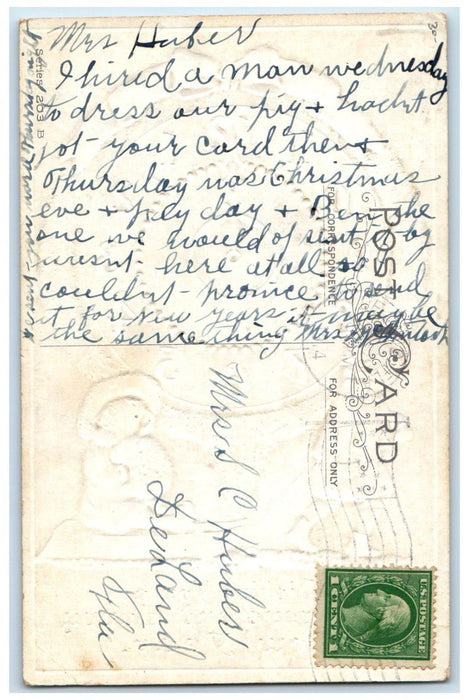 Mrs Huber
I hired a man wednesday
to dress our pig + hadnt
got your card then +
Thursday was Christmas
eve + Day day + Ben the
one we would of sent it by
wasnt here at all so
couldnt promice to send
it for New Years it may be
the same thing Mrs
sent you word Thursday
Series 203 B
30
POST CARD
FOR CORRESPONDENCE
FOR ADDRESS ONLY
Mrs S C Huber
DeLand
Fla
U.S. POSTAGE
1 CENT 1